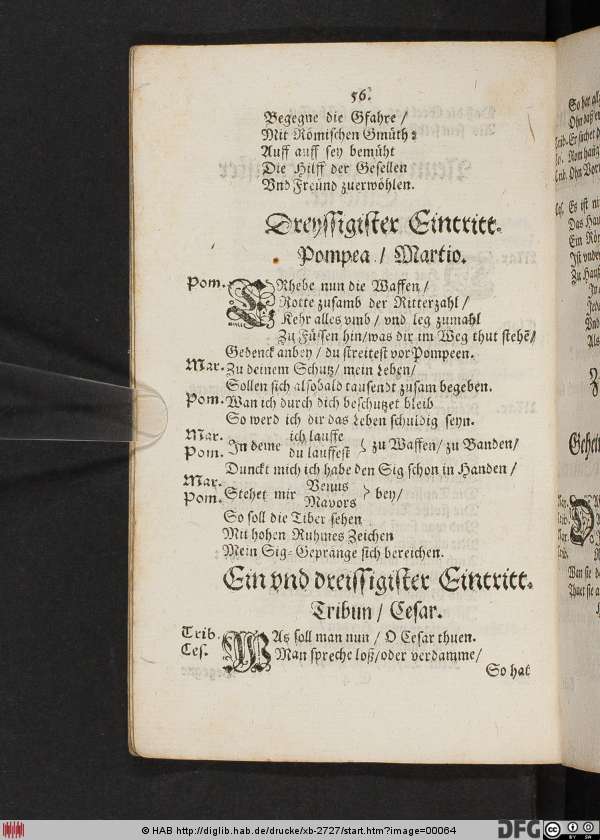 56.
Begegne die Gfahre /
Mit Römischen Gmüth:
Auff auff sey bemüht
Die Hilff der Gesellen
Vnd Freünd zuerwöhlen.
Dreyssigister Eintritt.
Pompea / Martio.
Pom. ERhebe nun die Waffen /
Rotte zusamb der Ritterzahl /
Kehr alles vmb / vnd leg zumahl
Zu Füssen hin / was dir im Weg thut stehẽ /
Gedenck anbey / du streitest vor Pompeen.
Mar. Zu deinem Schutz / mein Leben /
Sollen sich alsobald tausendt zusam begeben.
Pom. Wan ich durch dich beschutzet bleib
So werd ich dir das Leben schuldig seyn.
Mar. ich lauffe
In deme } zu Waffen / zu Banden /
Pom. du lauffest
Dunckt mich ich habe den Sig schon in Handen /
Mar. Venus
Stehet mir } bey /
Pom. Mavors
So soll die Tiber sehen
Mit hohen Ruhmes Zeichen
Mein Sig-Gepränge sich bereichen.
Ein vnd dreissigister Eintritt.
Tribun / Cesar.
Trib. WAs soll man nun / O Cesar thuen.
Ces. Man spreche loß / oder verdamme /
So hat
© HAB http://diglib.hab.de/drucke/xb-2727/start.htm?image=00064
DFG
CC BY SA